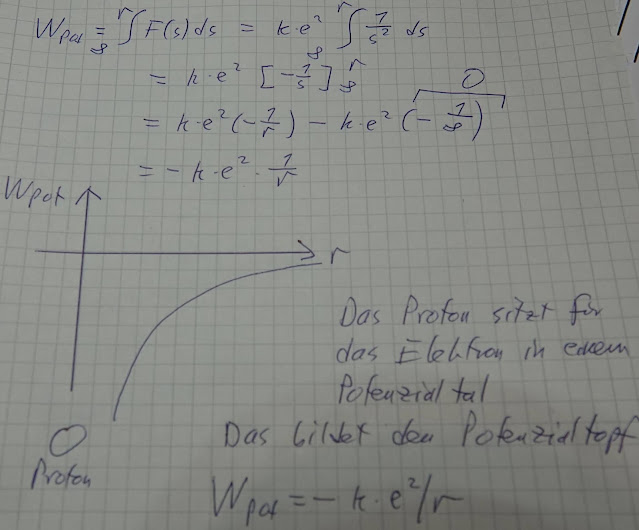 W_pot = ∞∫^r F(s) ds = k·e² ∞∫^r 1/s² ds
= k·e² [-1/s]∞^r
0
= k·e² (-1/r) - k·e² (-1/∞)
= -k·e² · 1/r
W_pot
r
Das Proton sitzt für
das Elektron in einem
Potenzialtal
Das bildet den Potenzialtopf
Proton
W_pot = -k·e²/r